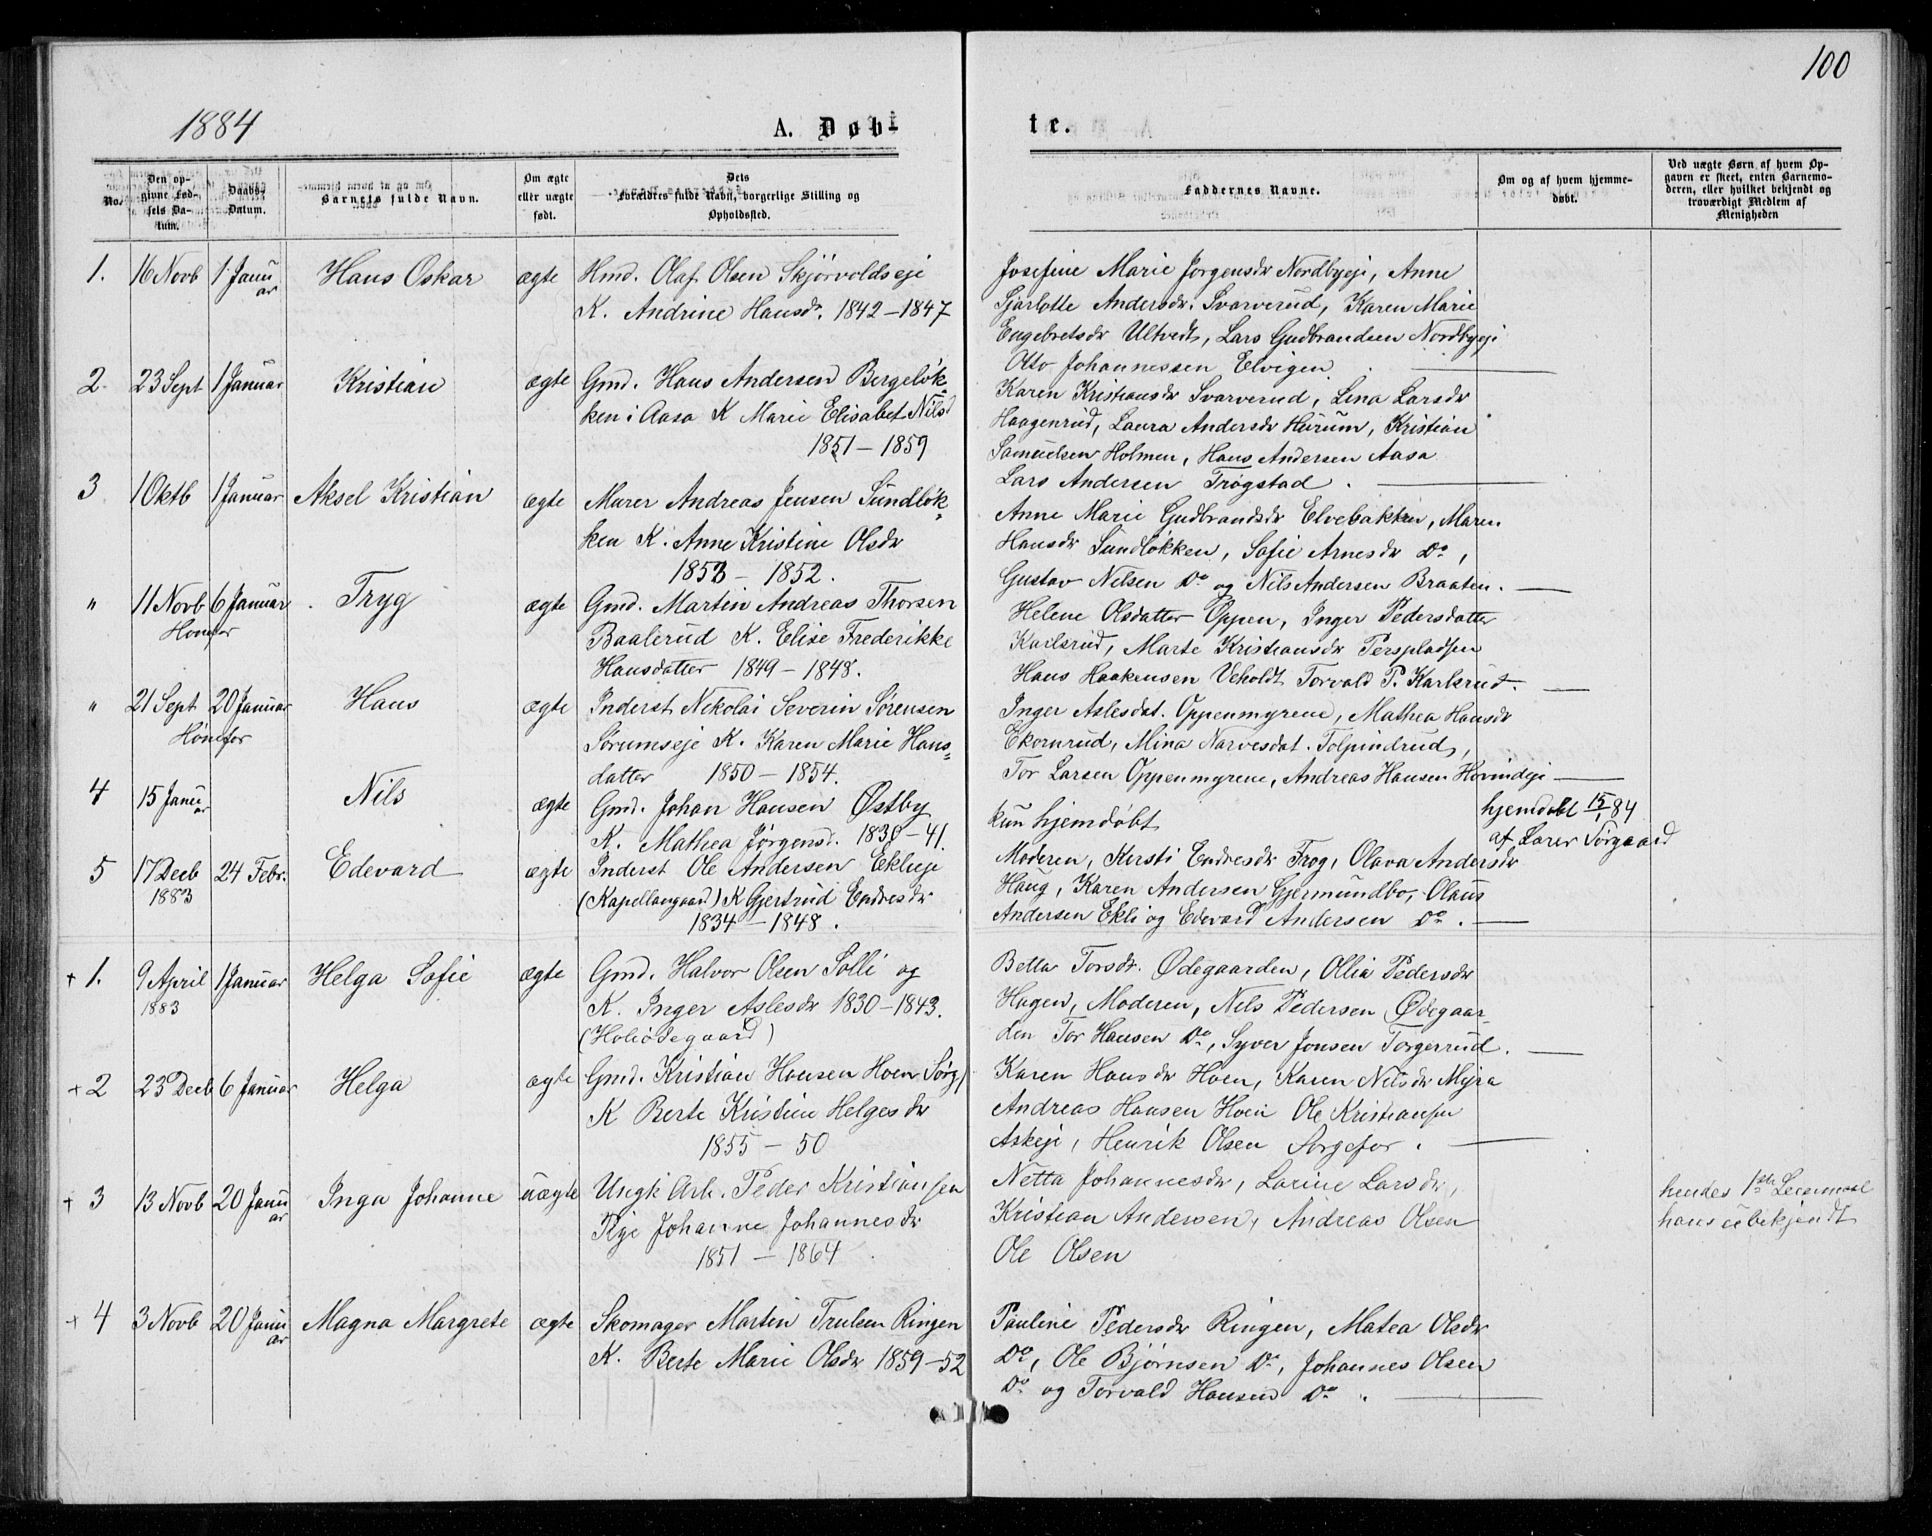 100
1884
A. Døbte.
No.
Den opgivne Fødsels Datum.
Daabs-Datum.
Barnets fulde Navn.
Om ægte eller uægte født.
Dets Forældres fulde Navn, borgerlige Stilling og Opholdssted.
Faddernes Navne.
Om og af hvem hjemmedøbt.
Ved uægte Børn af hvem Opgaven er skeet, enten Barnemoderen, eller hvilket bekjendt og troværdigt Medlem af Menigheden
1. 16 Novb 1 Januar Hans Oskar ægte Hmd. Olaf Olsen Skjørvoldseje
K. Andrine Hansd. 1842–1847
Josefine Marie Jorgensdr Nordbyeje, Anne
Sjarlotte Andersdr. Svarverud, Karen Marie
Engebretsdr Ultvedt, Lars Gudbrandsen Nordbyeje
Otto Johannessen Elvigen.
2. 23 Sept 1 Januar Kristian ægte Gmd. Hans Andersen Bergeløk-
ken i Aasa K Marie Elisabet Nilsd
1851–1859
Karen Kristiansdr Svarverud, Lina Larsdr
Haagenrud, Laura Andersdr Hurum, Kristian
Samuelsen Holmen, Hans Andersen Aasa
Lars Andersen Trøgstad.
3 1 Oktb 1 Januar Aksel Kristian ægte Murer Andreas Jensen Sundløk-
ken K. Anne Kristine Olsdr
1853 – 1852.
Anne Marie Gudbrandsdr Elvebakken, Maren
Hansdr Sundløkken, Sofie Arnesdr Do,
Gustav Nelsen Do og Nils Andersen Braaten.
" 11 Novb 6 Januar Tryg ægte Gmd. Martin Andreas Thorsen
Honefos
Baalerud K. Elise Frederikke
Hansdatter 1849–1848.
Helene Olsdatter Oppen, Inger Pedersdatter
Karlsrud, Marte Kristiansdr Perspladsen
Hans Haakensen Veholdt Torvald P. Karlsrud.
" 21 Sept 20 Januar Hans ægte Inderst Nikolai Severin Sørensen
Hønefos
Sørumseje K. Karen Marie Hans-
datter 1850–1854.
Inger Aslesdat. Oppenmyrene, Mathea Hansdr
Ekornrud, Mina Narvesdat. Tolpinrud,
Tor Larsen Oppenmyrene, Andreas Hansen Hovindeje
4 15 Januar Nils ægte Gmd. Johan Hansen Østby
K. Mathea Jørgensd. 1830–41.
kun hjemdøbt
hjemdøbt 15/1 84
af Lærer Sørgaard
5 17 Decb 1883 24 Febr. Edevard ægte Inderst Ole Andersen Eklieje
(Kapellangaard) K Gjertrud Endresdr
1834–1848.
Moderen, Kersti Endresdr Frog, Olava Andersdr
Haug, Karen Andersen Gjermundbo, Olaus
Andersen Ekli og Edevard Andersen Do.
+ 1. 9 April 1883 1 Januar Helga Sofie ægte Gmd. Halvor Olsen Solli og
K. Inger Aslesdr 1830–1843.
(Holiødegaard)
Betta Torsdr. Ødegaarden, Ollia Pedersdr
Hagen, Moderen, Nils Pedersen Ødegaar-
den Tor Hansen Do, Syver Jonsen Torgerrud.
+ 2 23 Decb 6 Januar Helga ægte Gmd. Kristian Hansen Hoen Sørg
K Berte Kristine Helgesdr
1855 – 50
Karen Hansdr Hoen, Karen Nilsdr Myra
Andreas Hansen Hoen Ole Kristiansen
Askeje, Henrik Olsen Sorgefos.
+ 3 13 Novb 20 Januar Inga Johanne uægte Ungk Arb. Peder Kristiansen
Pige Johanne Johannesdr
1851 – 1864
Netta Johannesdr, Larine Larsdr,
Kristian Andersen, Andreas Olsen
Ole Olsen
hendes 1ste Leiermaal
hans ubekjendt
+ 4 3 Novb 20 Januar Magna Margrete ægte Skomager Martin Trulsen Ringen
K. Berte Marie Olsdr 1859–52
Pauline Pedersdr Ringen, Matea Olsdr
Do, Ole Bjørnsen Do, Johannes Olsen
Do og Torvald Hansen Do.